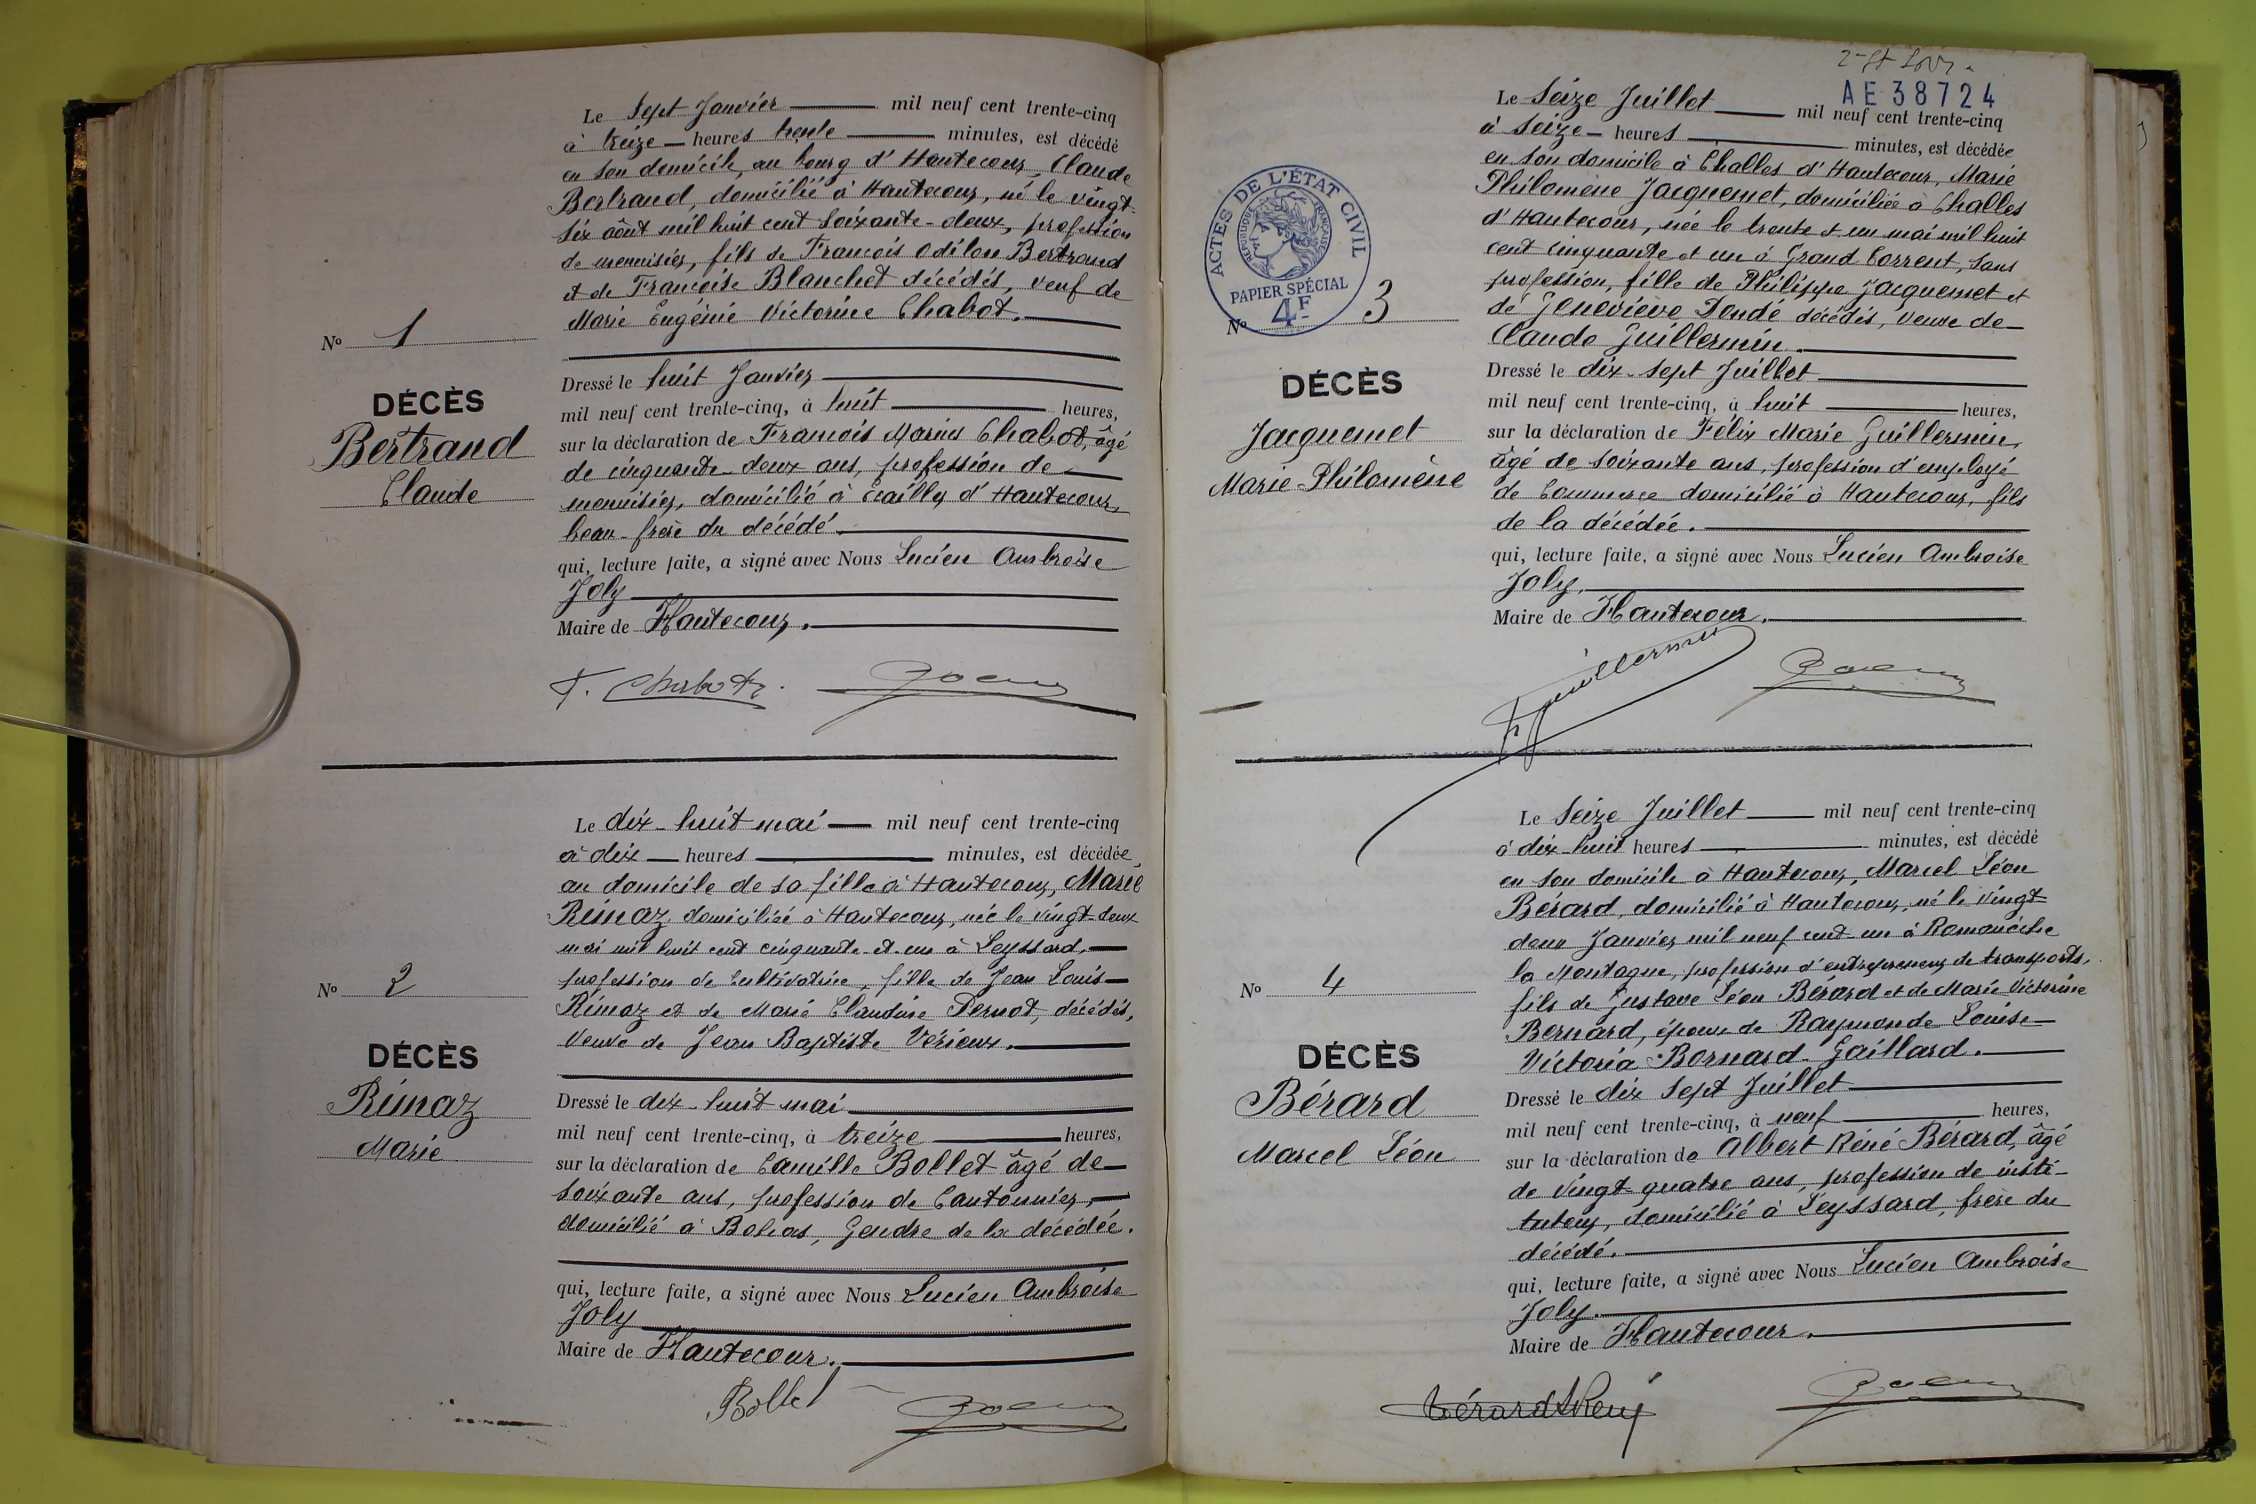 Le Sept Janvier mil neuf cent trente-cinq
à treize heures trente minutes, est décédé
en son domicile, au bourg d'Hautecour, Claude
Bertrand, domicilié à Hautecour, né le vingt-
six août mil huit cent soixante-deux, profession
de menuisier, fils de François Odilon Bertrand
et de Françoise Blanchet décédés, veuf de
Marie Eugénie Victorine Chabot.
No 1
DÉCÈS
Bertrand
Claude
Dressé le huit Janvier
mil neuf cent trente-cinq, à huit heures,
sur la déclaration de François Marius Chabot, âgé
de cinquante-deux ans, profession de
menuisier, domicilié à Ecailly d'Hautecour,
beau-frère du décédé.
qui, lecture faite, a signé avec Nous Lucien Ambroise
Joly
Maire de Hautecour.
F. Chabot
Le dix-huit mai mil neuf cent trente-cinq
à dix heures minutes, est décédée
au domicile de sa fille à Hautecour, Marie
Rimaz, domiciliée à Hautecour, née le vingt-deux
mai mil huit cent cinquante-et-un à Leyssard,
profession de Cultivatrice, fille de Jean Louis
Rimaz et de Marie Claudine Pernot, décédés,
Veuve de Jean Baptiste Vérieux.
No 2
DÉCÈS
Rimaz
Marie
Dressé le dix-huit mai
mil neuf cent trente-cinq, à treize heures,
sur la déclaration de Camille Bollet âgé de
soixante ans, profession de Cantonnier,
domicilié à Bohas, Gendre de la décédée.
qui, lecture faite, a signé avec Nous Lucien Ambroise
Joly
Maire de Hautecour.
Bollet
AE 38724
Le Seize Juillet mil neuf cent trente-cinq
à seize heures minutes, est décédée
en son domicile à Challes d'Hautecour, Marie
Philomène Jacquemet, domiciliée à Challes
d'Hautecour, née le trente et un mai mil huit
cent cinquante et un à Grand Corrent, sans
profession, fille de Philippe Jacquemet et
de Geneviève Dendé décédés, Veuve de
Claude Guillermin.
ACTES DE L'ÉTAT CIVIL
RÉPUBLIQUE FRANÇAISE
PAPIER SPÉCIAL
4F
No 3
DÉCÈS
Jacquemet
Marie-Philomène
Dressé le dix-sept Juillet
mil neuf cent trente-cinq, à huit heures,
sur la déclaration de Félix Marie Guillermin,
âgé de soixante ans, profession d'employé
de Commerce domicilié à Hautecour, fils
de la décédée.
qui, lecture faite, a signé avec Nous Lucien Ambroise
Joly.
Maire de Hautecour.
F Guillermin
Le Seize Juillet mil neuf cent trente-cinq
à dix-huit heures minutes, est décédé
en son domicile à Hautecour, Marcel Léon
Bérard, domicilié à Hautecour, né le vingt-
deux Janvier mil neuf cent-un à Romanèche
la Montagne, profession d'entrepreneur de transports,
fils de Gustave Léon Bérard et de Marie Victorine
Bernard, époux de Raymonde Louise
Victoria Bornard-Gaillard.
No 4
DÉCÈS
Bérard
Marcel Léon
Dressé le dix sept Juillet
mil neuf cent trente-cinq, à neuf heures,
sur la déclaration de Albert Réné Bérard, âgé
de vingt-quatre ans, profession de insti-
tuteur, domicilié à Leyssard, frère du
décédé.
qui, lecture faite, a signé avec Nous Lucien Ambroise
Joly.
Maire de Hautecour.
Bérard René